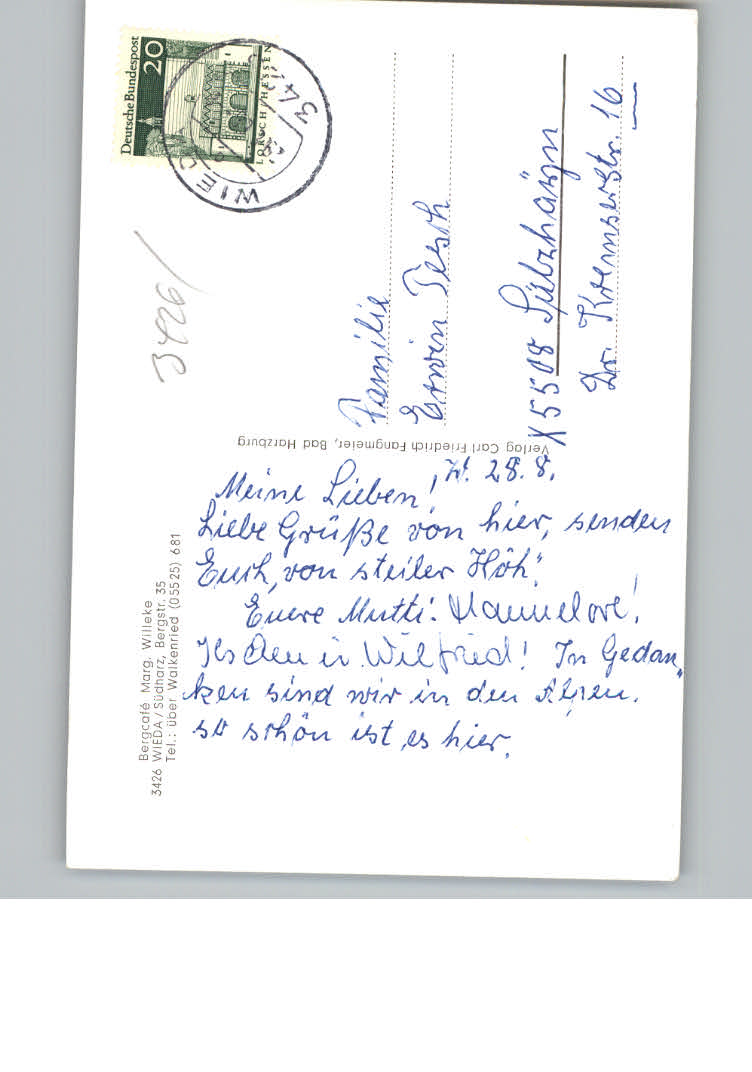 Meine Lieben! W. 28. 8.
Liebe Grüße von hier, senden
Euch, von steiler Höh'.
Euere Mutti. Hannelore!
Wilfried! In Gedan„
ken sind wir in den Alpen.
so schön ist es hier.
Familie
Erwin Tesch
X5508 Sülzhayn
Dr. Kremserstr. 16
3426
Deutsche Bundespost
20
LORSCH/HESSEN
34
WIEDA
Verlag: Carl Friedrich Fangmeier, Bad Harzburg
Bergcafé Marg. Willeke
3426 WIEDA/Südharz, Bergstr. 35
Tel.: über Walkenried (05525) 681